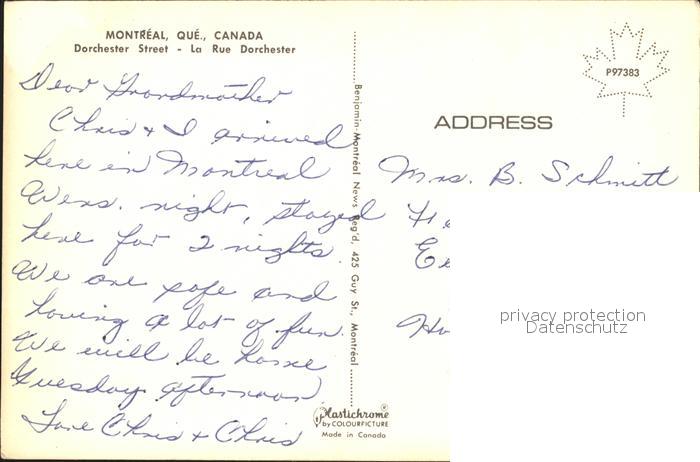 MONTRÉAL, QUÉ., CANADA
Dorchester Street - La Rue Dorchester
Dear Grandmother
Chris + I arrived
here in Montreal
Wens. night, stayed
here for 2 nights.
We are safe and
having a lot of fun.
We will be home
Tuesday afternoon
Love Chris + Chris
Benjamin-Montréal News Reg'd, 425 Guy St., Montréal
Plastichrome®
by COLOURPICTURE
Made in Canada
P97383
ADDRESS
Mrs. B. Schmitt
privacy protection
Datenschutz